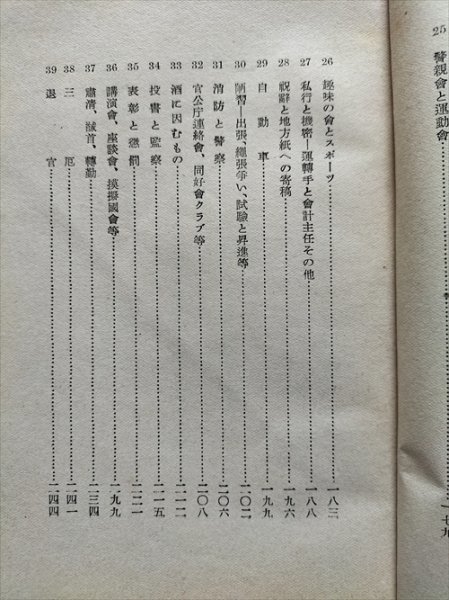 25 警親會と運動會……………一七九
26 趣味の會とスポーツ……………一八三
27 私行と機密―運轉手と會計主任その他……………一八八
28 祝辭と地方紙への寄稿……………一九六
29 自動車……………一九九
30 陋習―出張、繩張爭い、試驗と昇進等……………二〇二
31 消防と警察……………二〇六
32 官公庁連絡會、同好會クラブ等……………二〇八
33 酒に因むもの……………二一二
34 投書と監察……………二一五
35 表彰と懲罰……………二二一
36 講演會、座談會、模擬國會等……………一九九
37 肅清、馘首、轉勤……………二三四
38 三厄……………二四一
39 退官……………二四四